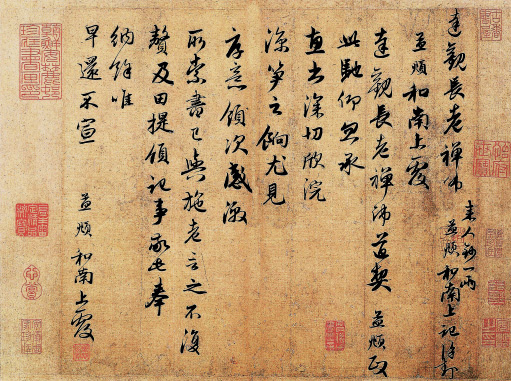 達觀長老禪師
来人鈔一兩
孟頫和南上記謹封
孟頫和南上覆
達觀長老禪師道契孟頫政
此馳仰忽承
惠書深切欣浣
深笋之餉尤見
厚意領次感激
所索書已與施老言之不復
贅及田提領記事敬此奉
納餘唯
早還不宣 孟頫和南上覆